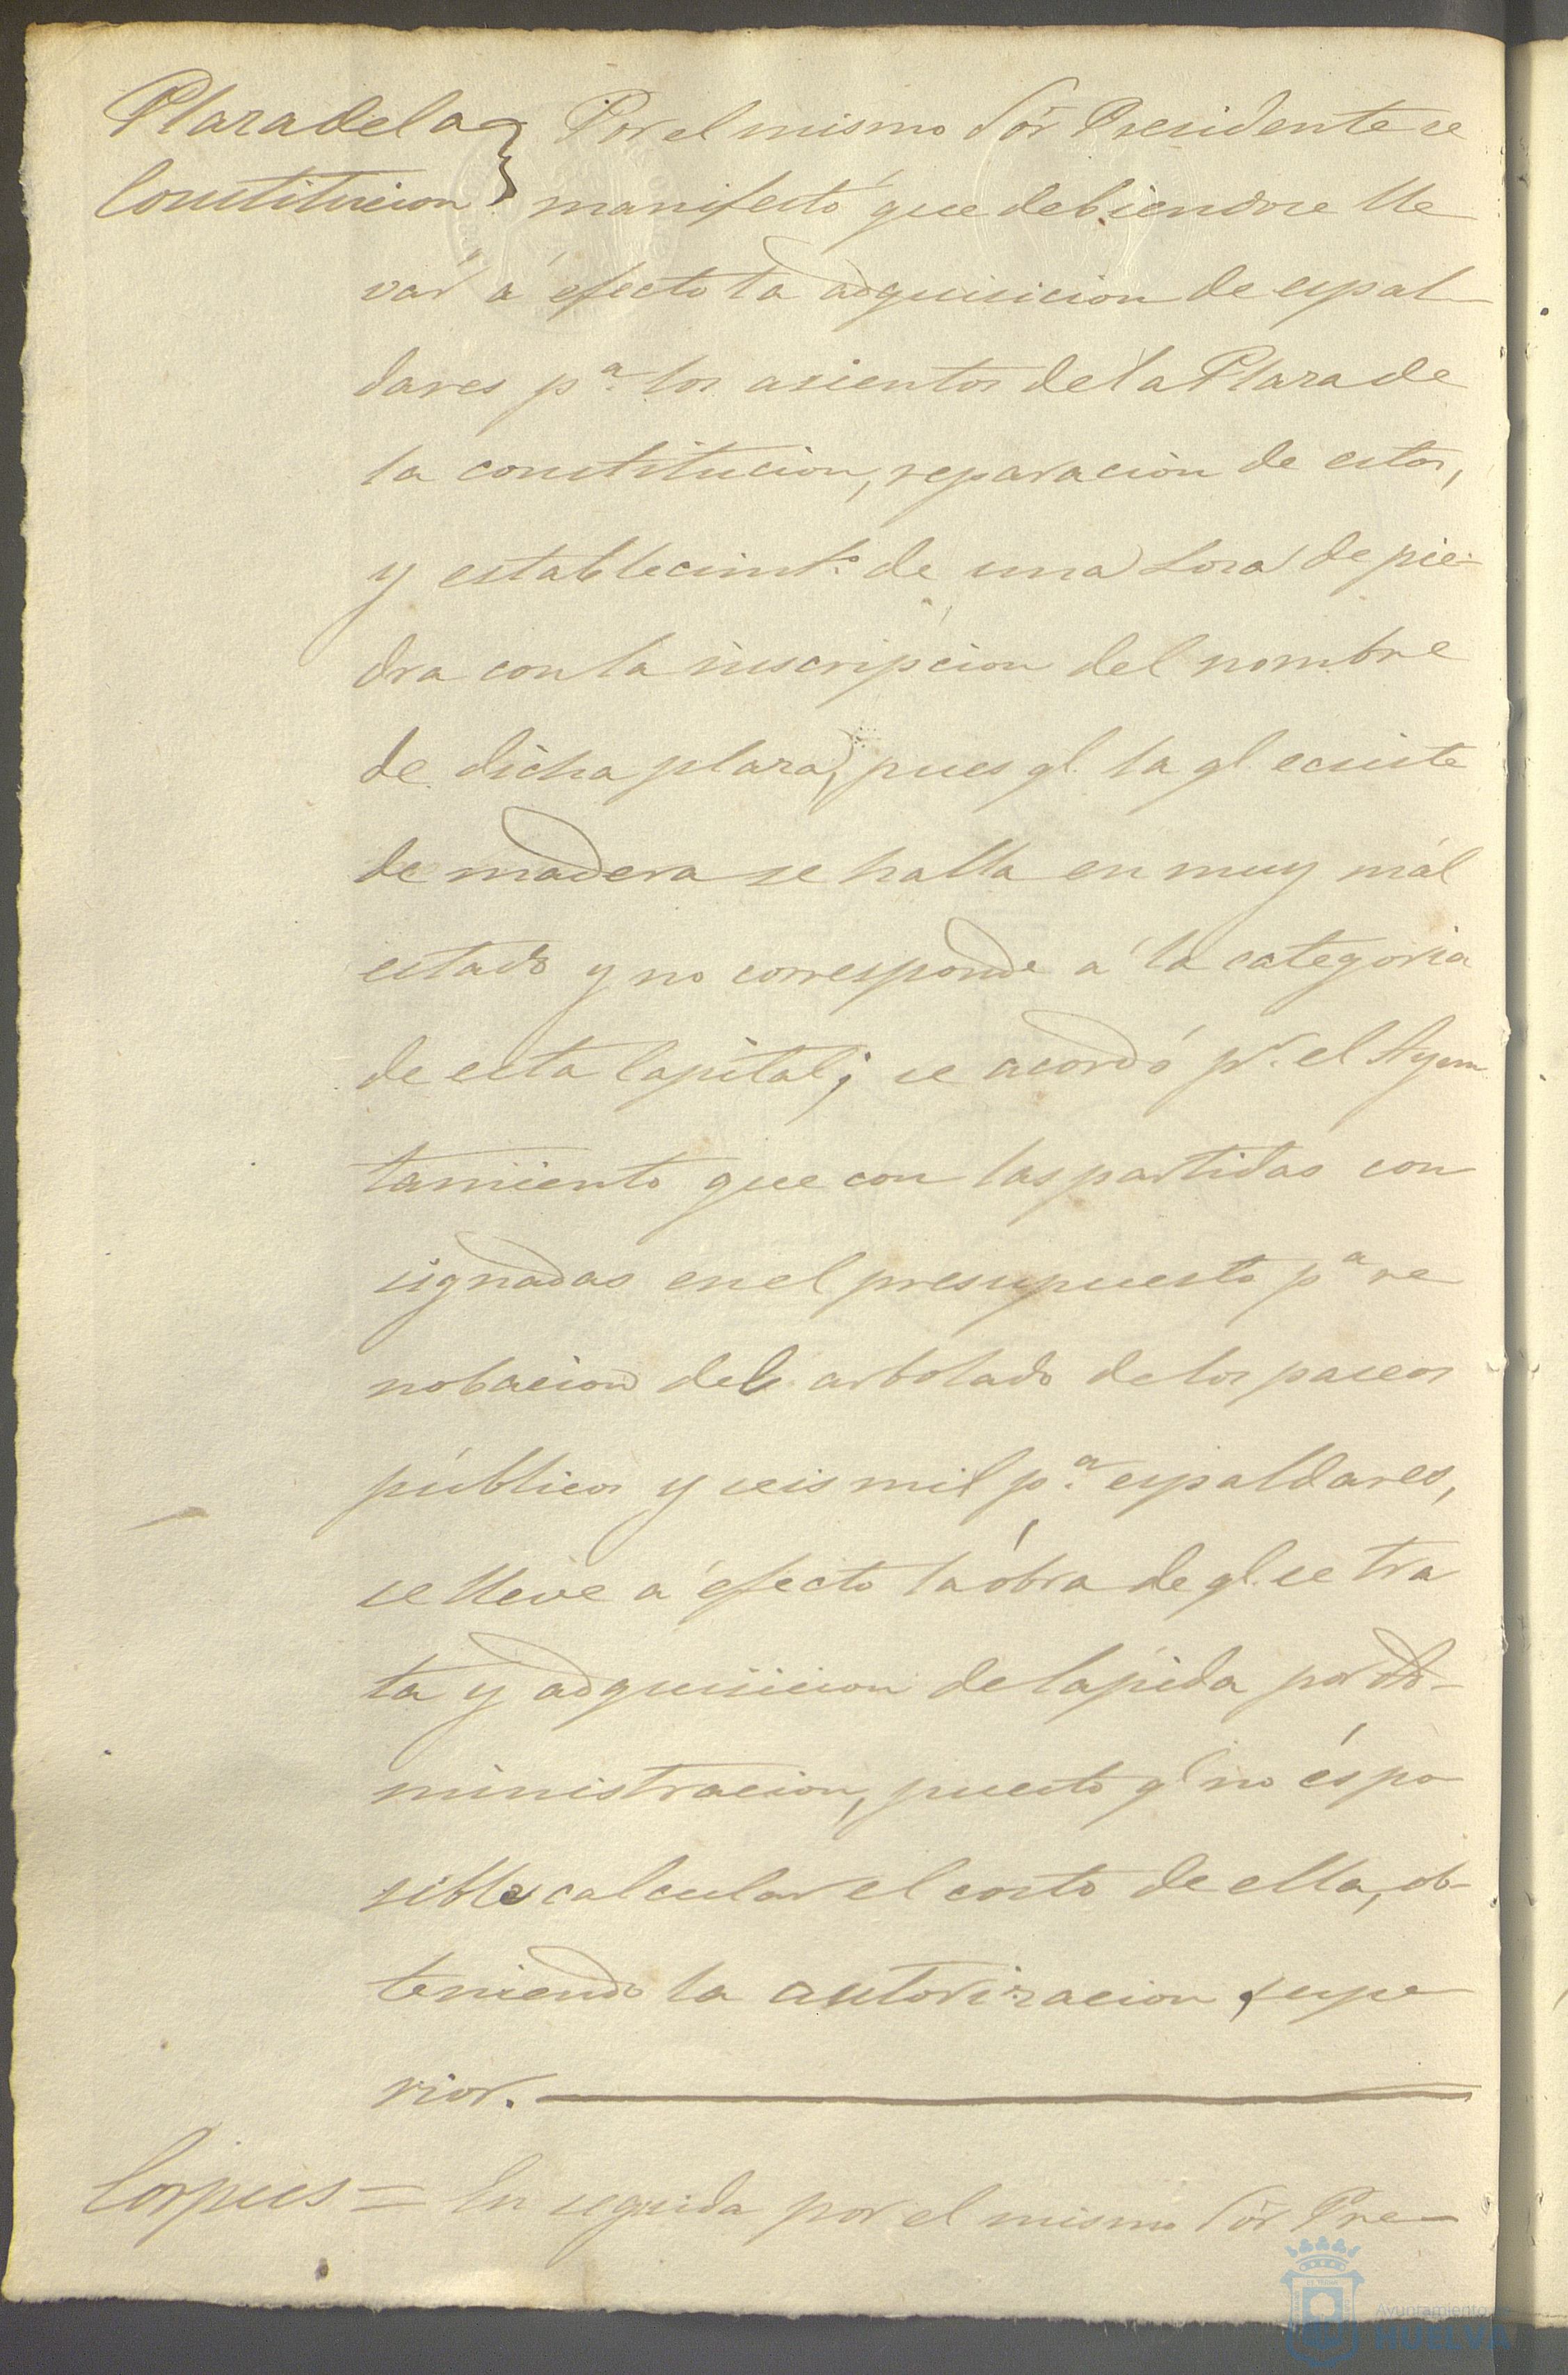 Plaza de la } Por el mismo Sór Presidente se
Constitucion } manifestó que debiendose lle
var á efecto la adquisicion de espal
dares pª. los asientos de la Plaza de
la constitucion, reparacion de estos,
y establecimtº. de una Losa de pie-
dra con la inscripcion del nombre
de dicha plaza, pues q̃. la q̃. ecsiste
de madera se halla en muy mál
estado y no corresponde á la categoria
de esta Capital; se acordó pr. el Ayun
tamiento que con las partidas con
signadas en el presupuesto pª re
nobacion del arbolado de los paseos
públicos y seis mil pª. espaldares,
se lleve á efecto la óbra de q̃. se tra
ta y adquisicion de lápida por Ad-
ministracion, puesto q̃ no és po
sible calcular el costo de ella, ob-
teniendo la autorizacion supe
rior.
Corpus = En seguida por el mismo Sór Pre-
Ayuntamiento de
HUELVA